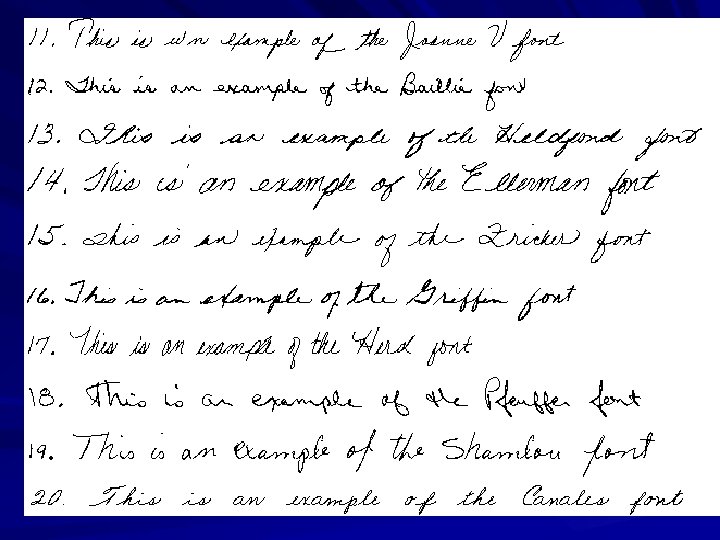 11. This is un example of the Joanne V font
12. This is an example of the Baillie font
13. This is an example of the Heldfond font
14. This is an example of the Ellerman font
15. This is an example of the Fricker font
16. This is an example of the Griffin font
17. This is an example of the Herd font
18. This is an example of the Pfeuffer font
19. This is an example of the Shamlou font
20. This is an example of the Canales font